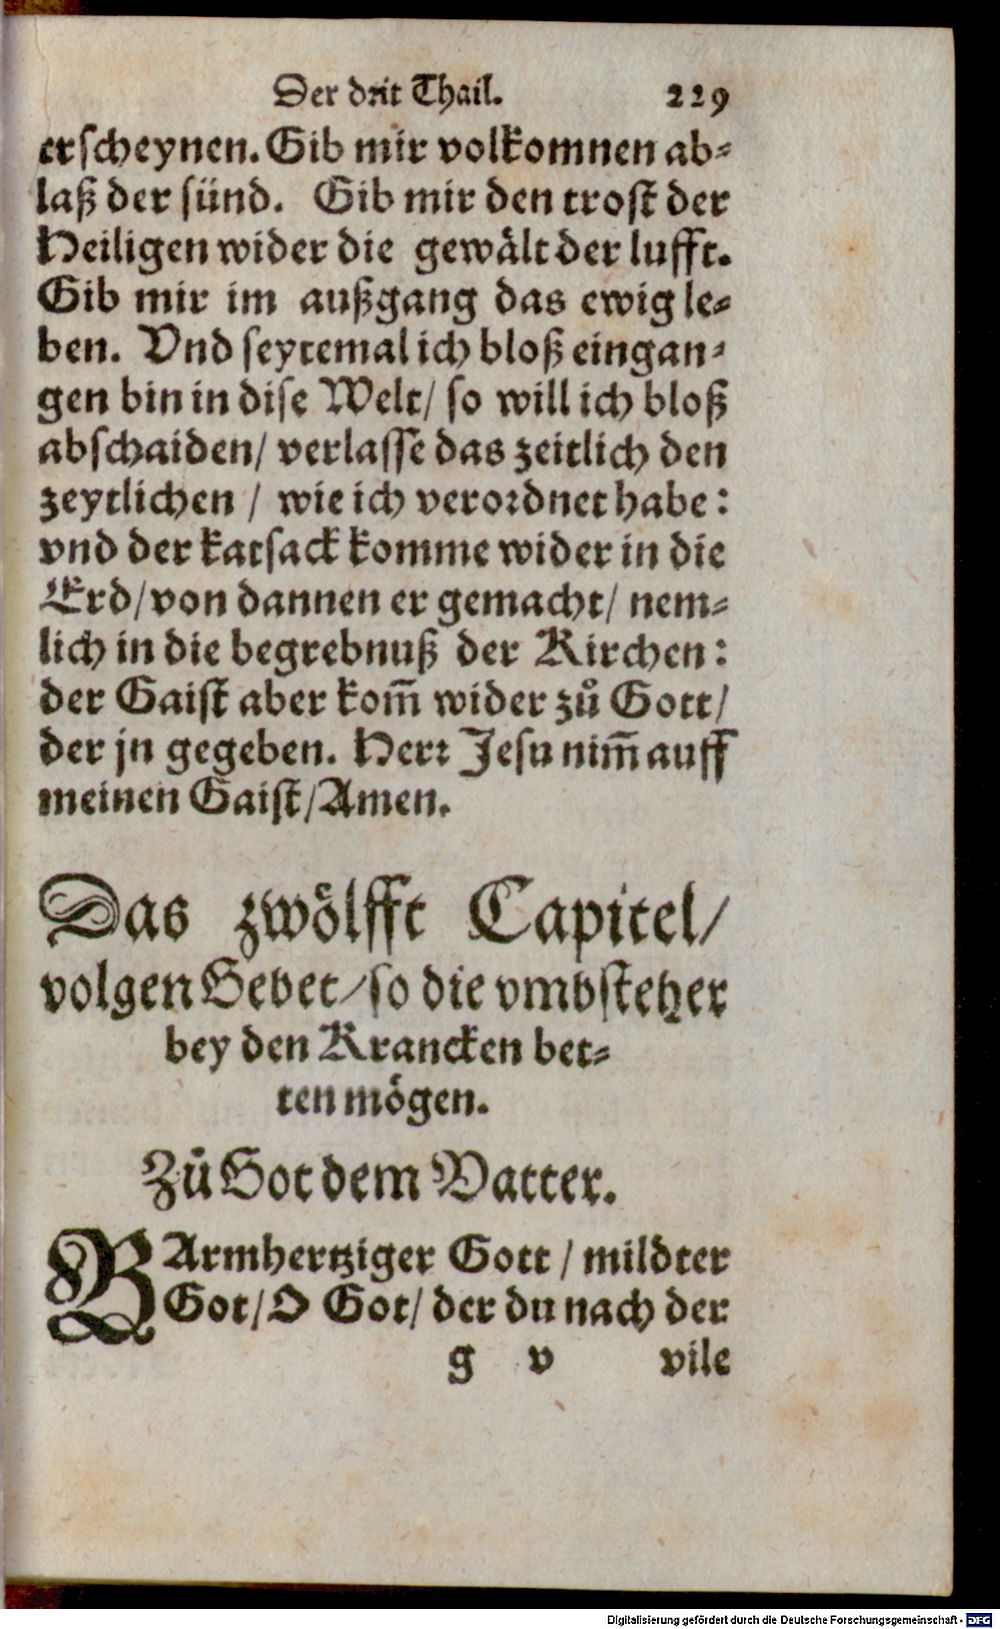 Der drit Thail. 229
erscheynen. Gib mir volkomnen ab⸗
laß der sünd. Gib mir den trost der
Heiligen wider die gewålt der lufft.
Gib mir im außgang das ewig le⸗
ben. Vnd seytemal ich bloß eingan⸗
gen bin in dise Welt/ so will ich bloß
abschaiden/ verlasse das zeitlich den
zeytlichen / wie ich verordnet habe:
vnd der katsack komme wider in die
Erd/von dannen er gemacht/ nem⸗
lich in die begrebnuß der Kirchen:
der Gaist aber kom̃ wider zů Gott/
der jn gegeben. Herr Jesu nim̃ auff
meinen Gaist/Amen.
Das zwölfft Capitel/
volgen Gebet/so die vmbsteher
bey den Krancken bet⸗
ten mögen.
Zů Got dem Vatter.
BArmhertziger Gott / mildter
Got/O Got/ der du nach der
g v vile
Digitalisierung gefördert durch die Deutsche Forschungsgemeinschaft - DFG